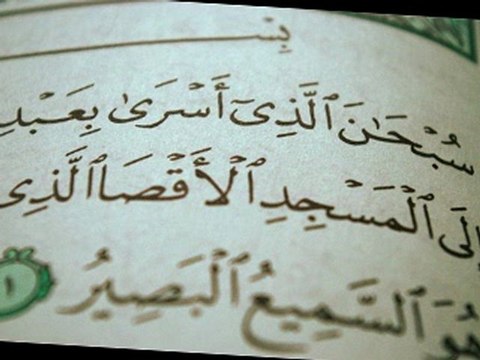 بِسْـ
سُبْحَٰنَ ٱلَّذِىٓ أَسْرَىٰ بِعَبْدِ
إِلَى ٱلْمَسْجِدِ ٱلْأَقْصَا ٱلَّذِى
هُوَ ٱلسَّمِيعُ ٱلْبَصِيرُ ١